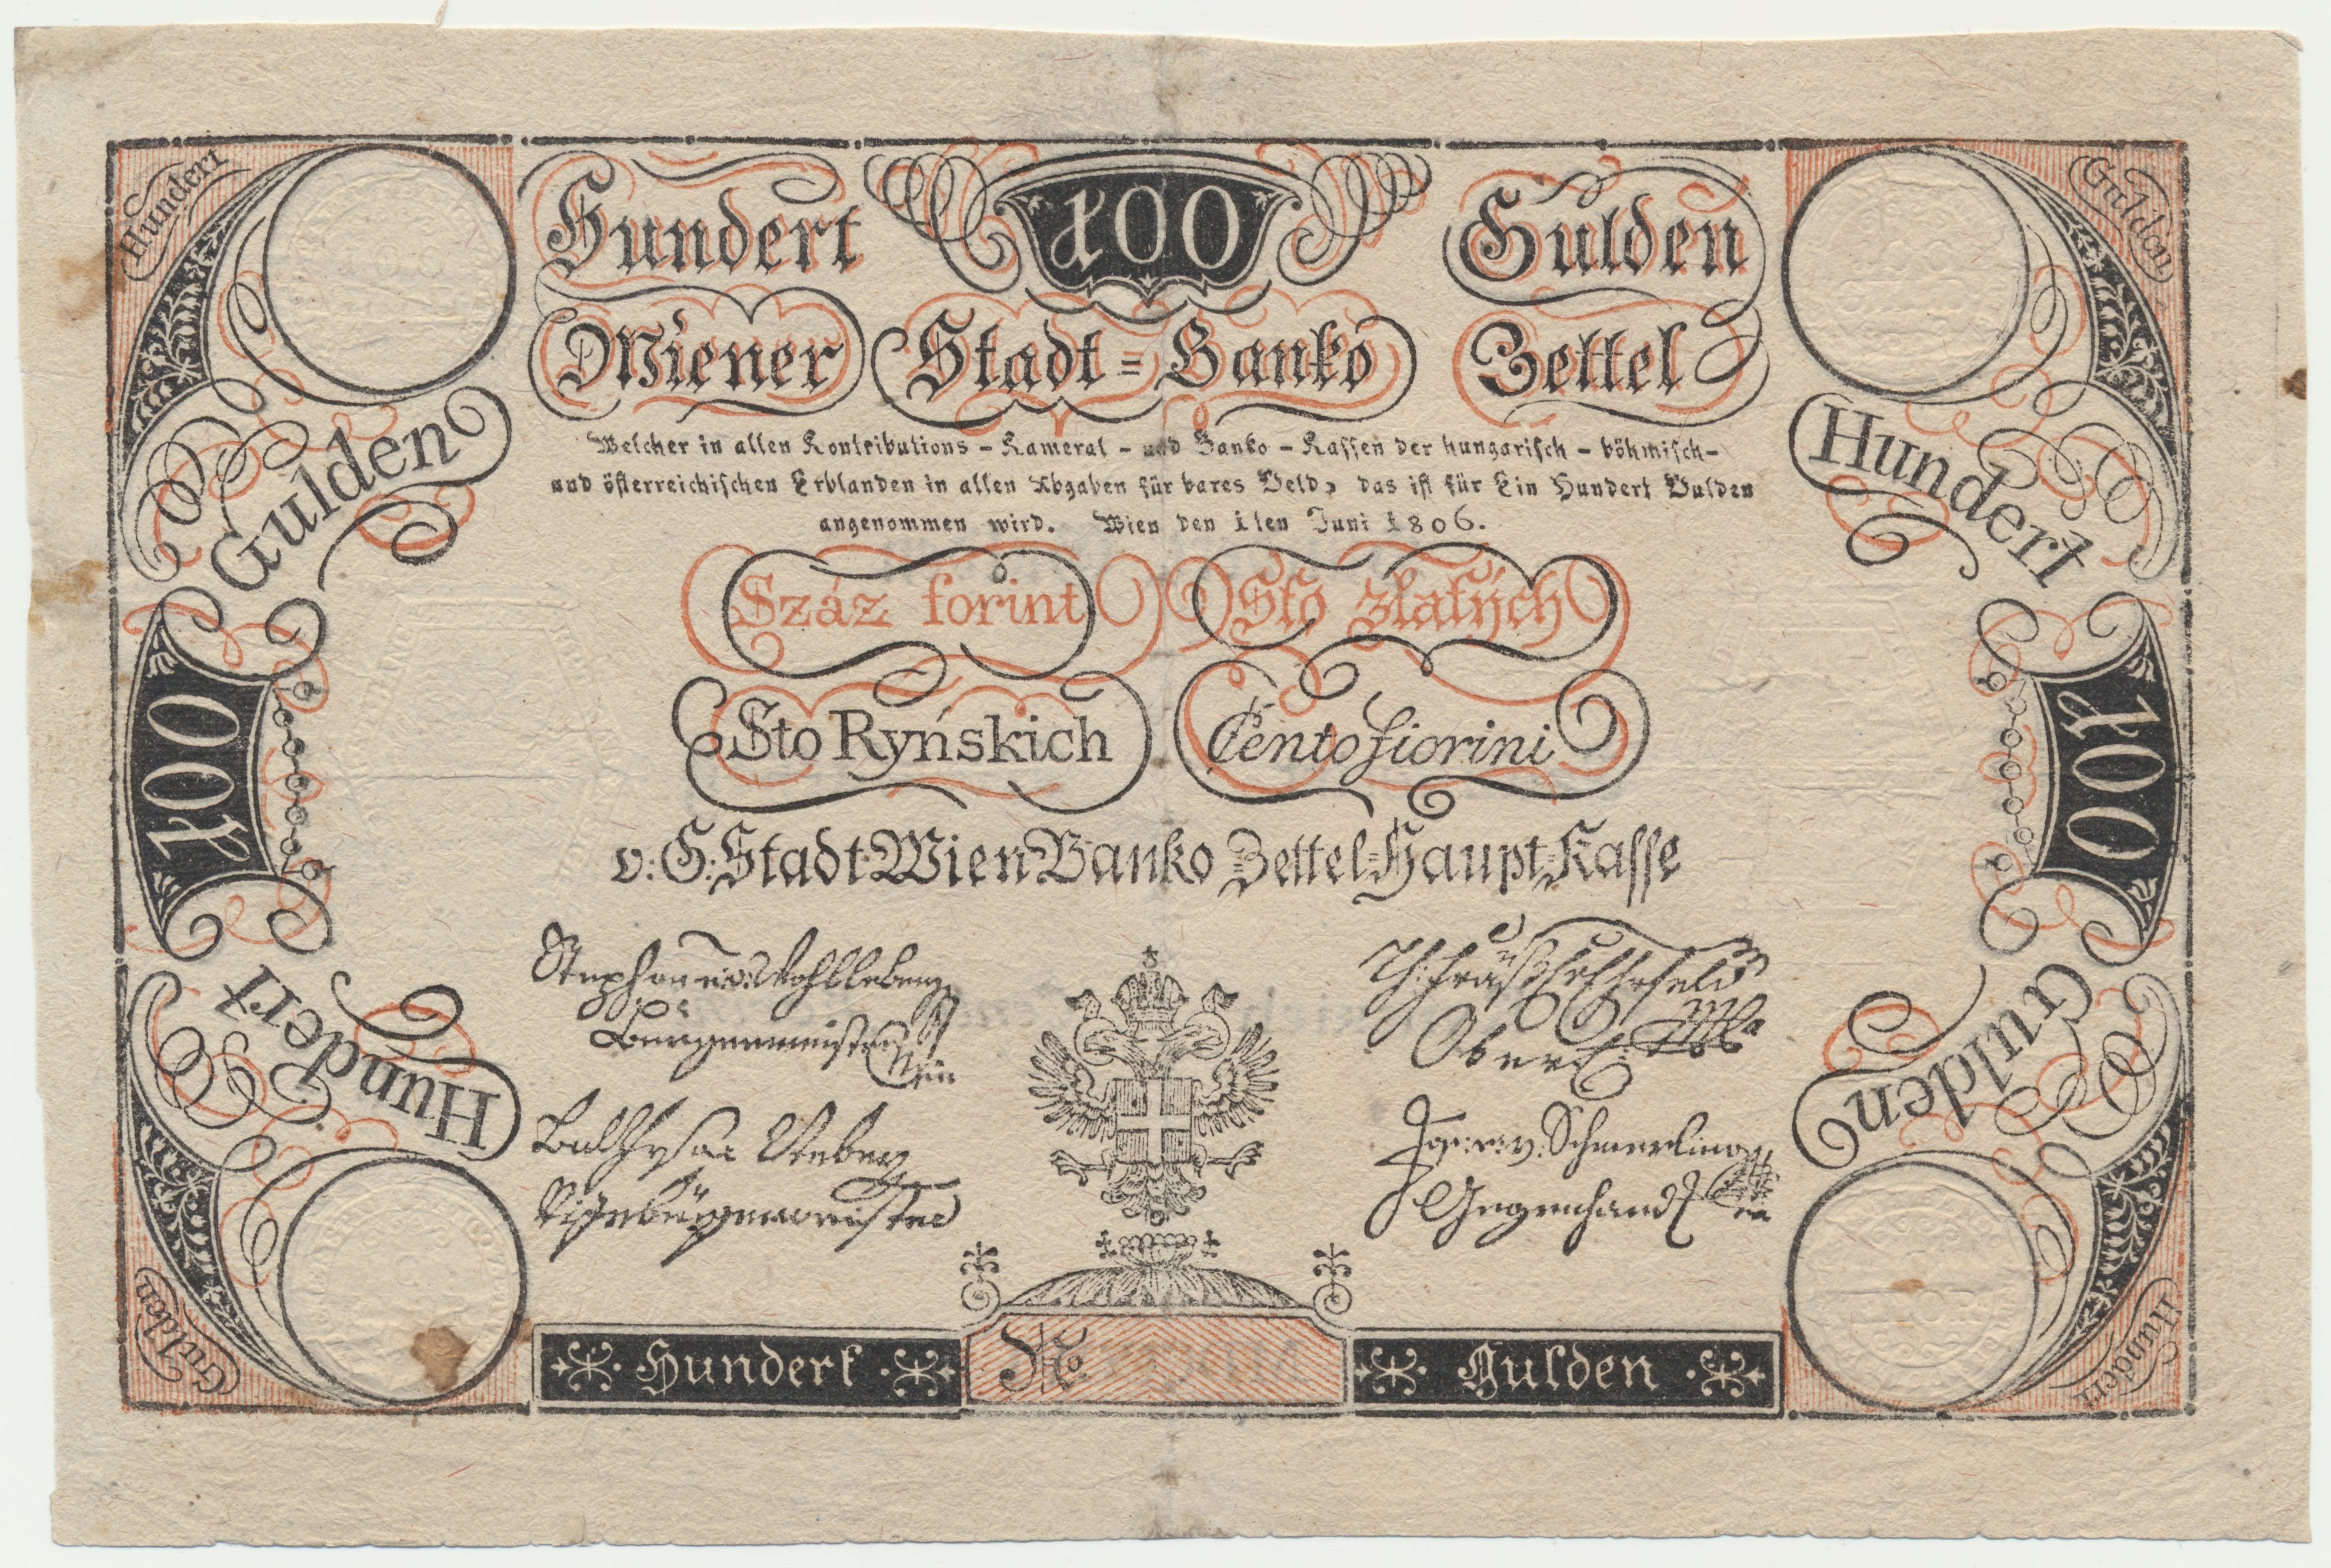 Hundert
Hundert 100 Gulden
Gulden
Wiener Stadt=Banko Zettel
Welcher in allen Kontributions - Kameral - und Banko - Kassen der hungarisch - böhmisch-
und österreichischen Erblanden in allen Abgaben für bares Geld, das ist für Ein Hundert Gulden
angenommen wird. Wien den 1ten Juni 1806.
Gulden
Hundert
Száz forint Sto zlatých
Sto Ryńskich Cento fiorini
100
100
v: G: Stadt Wien Banko Zettel=Haupt Kasse
Stephan v: Wohlleben
Burgermeister
Ober
Jos: r: v: Schmerling
Gegenhand
Vizeburgermeister
Hundert
Gulden
Hundert No Gulden
Gulden
Hundert